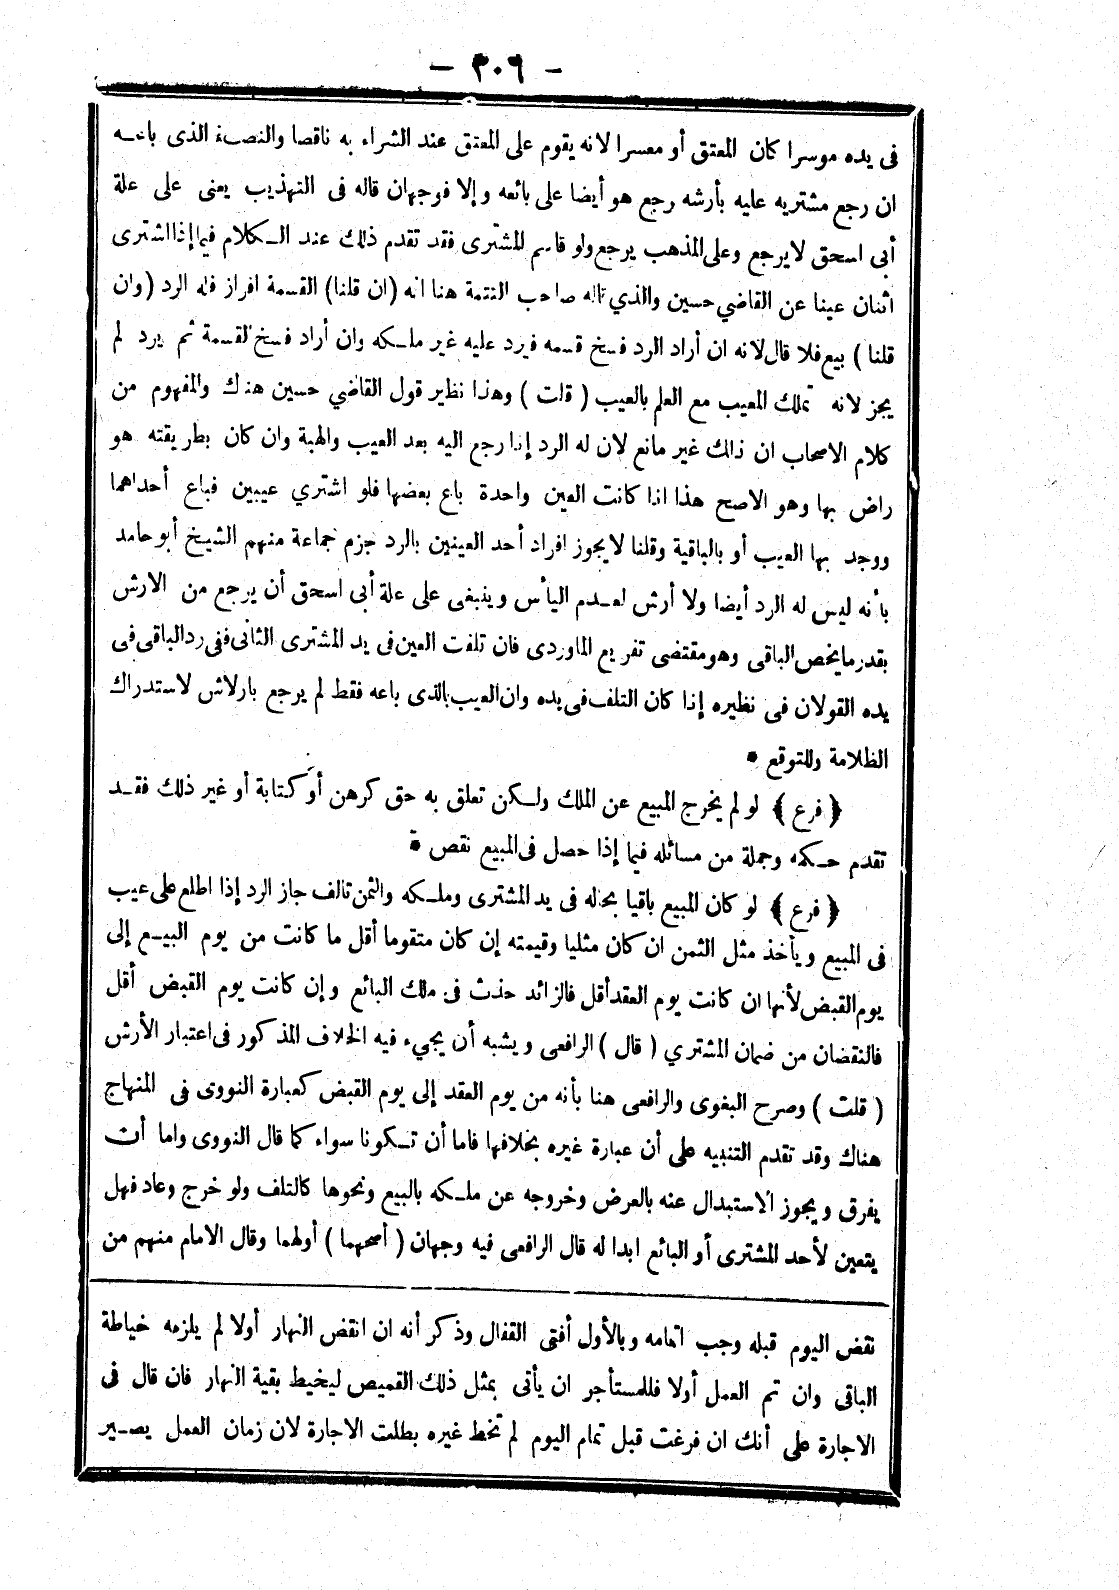 - ٣٠٦ -
فى يده موسرا كان المعتق أو معسرا لانه يقوم على المعتق عند الشراء به ناقصا والنصف الذى باعه
ان رجع مشتريه عليه بأرشه رجع هو أيضا على بائعه وإلا فوجهان قاله فى التهذيب يعنى على علة
أبى اسحق لا يرجع وعلى المذهب يرجع ولو قاسم المشترى فقد تقدم ذلك عند الكلام فيما إذا اشترى
اثنان عينا عن القاضي حسين والذي قاله صاحب التتمة هنا انه (ان قلنا) القسمة افراز فله الرد (وان
قلنا) بيع فلا قال لانه ان أراد الرد فسخ قسمه فيرد عليه غير ملكه وان أراد فسخ القسمة ثم يرد لم
يجز لانه تملك المعيب مع العلم بالعيب (قلت) وهذا نظير قول القاضي حسين هناك والمفهوم من
كلام الاصحاب ان ذلك غير مانع لان له الرد إذا رجع اليه بعد العيب والهبة وان كان بطريقته هو
راض بها وهو الاصح هذا اذا كانت العين واحدة باع بعضها فلو اشتري عيبين فباع أحداهما
ووجد بها العيب أو بالباقية وقلنا لا يجوز افراد أحد العينين بالرد جزم جماعة منهم الشيخ أبو حامد
بأنه ليس له الرد أيضا ولا أرش لعدم اليأس وينبغى على علة أبى اسحق أن يرجع من الارش
بقدر ما يخص الباقى وهو مقتضى تفريع الماوردى فان تلفت العين فى يد المشترى الثانى ففى رد الباقى فى
يده القولان فى نظيره إذا كان التلف فى يده وان العيب بالذى باعه فقط لم يرجع بارلاش لاستدراك
الظلامة وللتوقع *
﴿ فرع ﴾ لو لم يخرج المبيع عن الملك ولكن تعلق به حق كرهن أو كتابة أو غير ذلك فقد
تقدم حكمه وجملة من مسائله فيما إذا حصل فى المبيع نقص *
﴿ فرع ﴾ لو كان المبيع باقيا بحاله فى يد المشترى وملكه والثمن تالف جاز الرد إذا اطلع على عيب
فى المبيع ويأخذ مثل الثمن ان كان مثليا وقيمته إن كان متقوما أقل ما كانت من يوم البيع إلى
يوم القبض لأنها ان كانت يوم العقد أقل فالزائد حدث فى ملك البائع وإن كانت يوم القبض أقل
فالنقضان من ضمان المشتري (قال) الرافعى ويشبه أن يجيء فيه الخلاف المذكور فى اعتبار الأرش
(قلت) وصرح البغوى والرافعى هنا بأنه من يوم العقد إلى يوم القبض كعبارة النووى فى المنهاج
هناك وقد تقدم التنبيه على أن عبارة غيره بخلافها فاما أن تكونا سواء كما قال النووى واما أن
يفرق ويجوز الاستبدال عنه بالعرض وخروجه عن ملكه بالبيع ونحوها كالتلف ولو خرج وعاد فهل
يتعين لأحد المشترى أو البائع ابدا له قال الرافعى فيه وجهان (أصحهما) أولهما وقال الامام منهم من
نقض اليوم قبله وجب اتمامه وبالأول أفتى القفال وذكر أنه ان انقض النهار أولا لم يلزمه خياطة
الباقى وان تم العمل أولا فللمستأجر ان يأتى بمثل ذلك القميص ليخيط بقية النهار فان قال فى
الاجارة على أنك ان فرغت قبل تمام اليوم لم تخط غيره بطلت الاجارة لان زمان العمل يصير